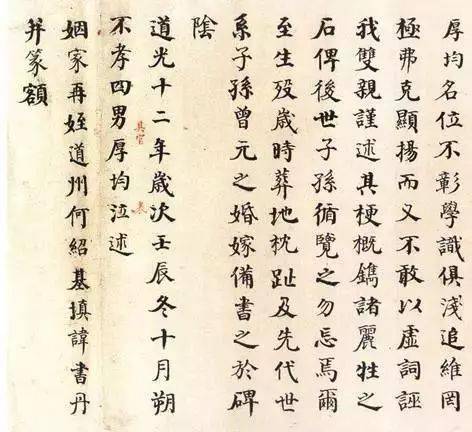 厚均名位不彰學識俱淺追維罔
極弗克顯揚而又不敢以虛詞誣
我雙親謹述其梗概鐫諸麗牲之
石俾後世子孫循覽之勿忘焉爾
至生歿歲時葬地枕趾及先代世
系子孫曾元之婚嫁備書之於碑
陰
道光十二年歲次壬辰冬十月朔
不孝四男厚均泣述
姻家再姪道州何紹基填諱書丹
并篆額
具官